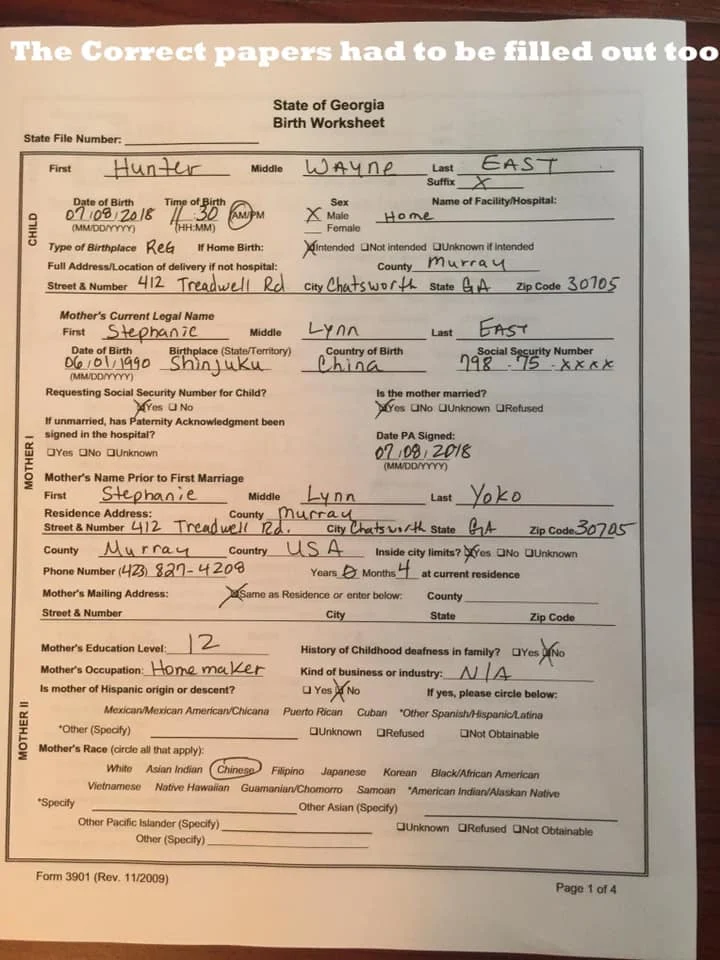 The Correct papers had to be filled out too
State of Georgia
Birth Worksheet
State File Number:
CHILD
First Hunter Middle Wayne Last EAST
Suffix X
Date of Birth Time of Birth Sex Name of Facility/Hospital:
07/08/2018 11:30 AM/PM X Male Home
(MM/DD/YYYY) (HH:MM) Female
Type of Birthplace ReG If Home Birth: ☒Intended ❑Not intended ❑Unknown if intended
Full Address/Location of delivery if not hospital: County Murray
Street & Number 412 Treadwell Rd City Chatsworth State GA Zip Code 30705
MOTHER I
Mother's Current Legal Name
First Stephanie Middle Lynn Last EAST
Date of Birth Birthplace (State/Territory) Country of Birth Social Security Number
06/01/1990 Shinjuku China 798-75-xxxx
(MM/DD/YYYY)
Requesting Social Security Number for Child? Is the mother married?
☒Yes ❑ No ☒Yes ❑No ❑Unknown ❑Refused
If unmarried, has Paternity Acknowledgment been
signed in the hospital? Date PA Signed:
❑Yes ❑No ❑Unknown 07/08/2018
(MM/DD/YYYY)
Mother's Name Prior to First Marriage
First Stephanie Middle Lynn Last Yoko
Residence Address: County Murray
Street & Number 412 Treadwell Rd. City Chatsworth State GA Zip Code 30705
County Murray Country USA Inside city limits? ☒Yes ❑No ❑Unknown
Phone Number (423) 827-4208 Years 0 Months 4 at current residence
Mother's Mailing Address: ☒Same as Residence or enter below: County
Street & Number City State Zip Code
MOTHER II
Mother's Education Level: 12 History of Childhood deafness in family? ❑Yes ☒No
Mother's Occupation: Homemaker Kind of business or industry: N/A
Is mother of Hispanic origin or descent? ❑ Yes ☒ No If yes, please circle below:
Mexican/Mexican American/Chicana Puerto Rican Cuban *Other Spanish/Hispanic/Latina
*Other (Specify) ❑Unknown ❑Refused ❑Not Obtainable
Mother's Race (circle all that apply):
White Asian Indian Chinese Filipino Japanese Korean Black/African American
Vietnamese Native Hawaiian Guamanian/Chomorro Samoan *American Indian/Alaskan Native
*Specify Other Asian (Specify)
Other Pacific Islander (Specify) ❑Unknown ❑Refused ❑Not Obtainable
Other (Specify)
Form 3901 (Rev. 11/2009) Page 1 of 4